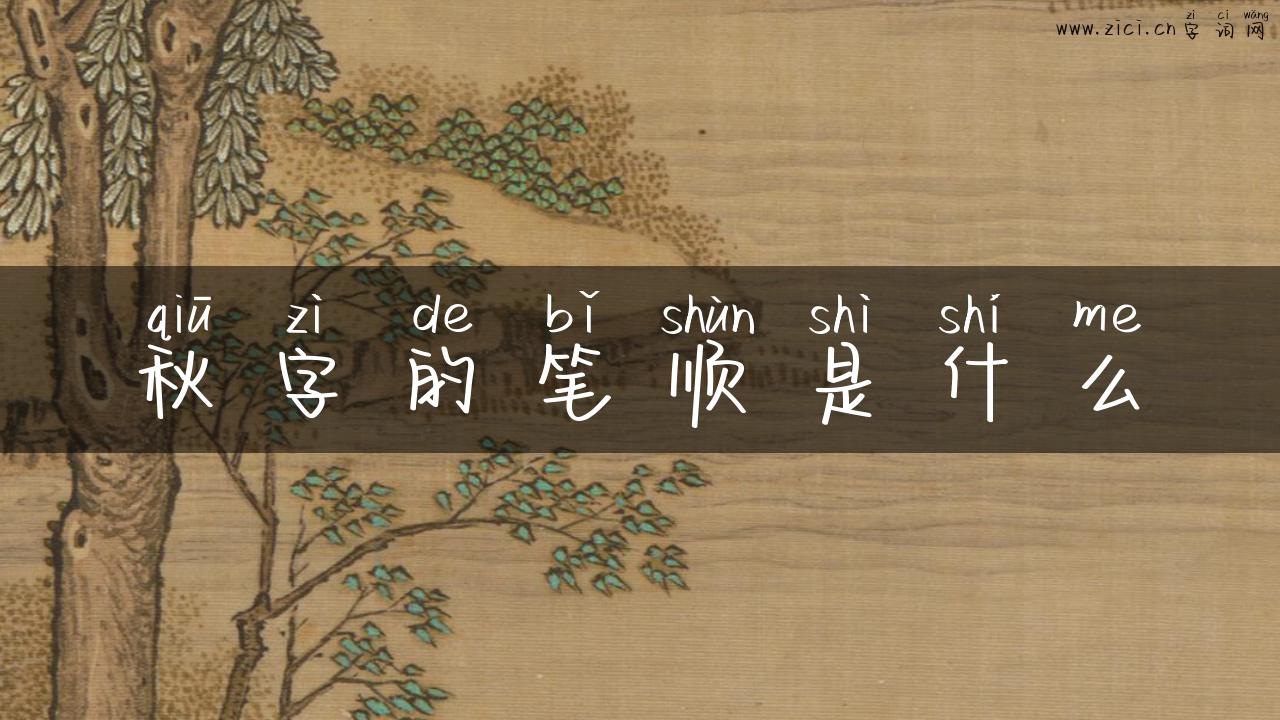 zì cí wǎng
www.zici.cn 字词网
qiū zì de bǐ shùn shì shí me
秋字的笔顺是什么